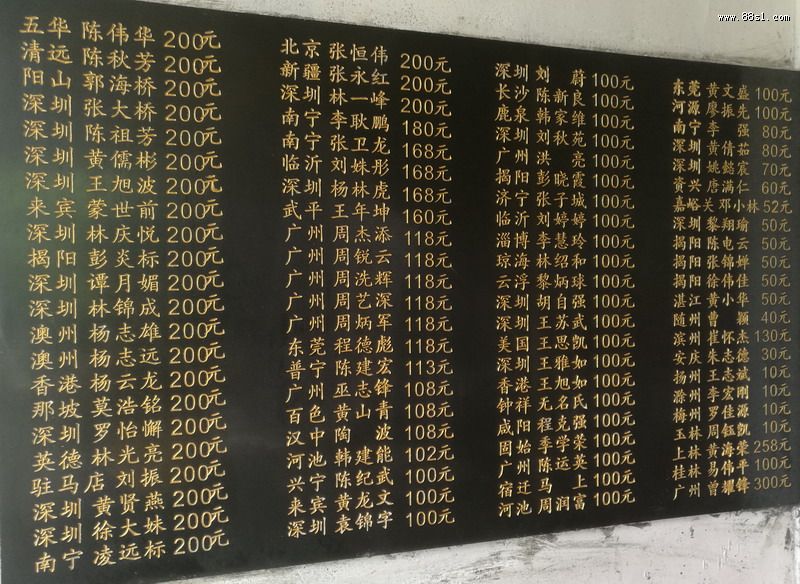 www.88sl.com
五华 陈伟华 200元
清远 陈秋芳 200元
阳山 郭海桥 200元
深圳 张大桥 200元
深圳 陈祖芳 200元
深圳 黄儒彬 200元
深圳 王旭波 200元
来宾 蒙世前 200元
深圳 林庆悦 200元
揭阳 彭炎标 200元
深圳 谭月媚 200元
深圳 林锦成 200元
澳州 杨志雄 200元
澳州 杨志远 200元
香港 杨云龙 200元
那坡 莫浩铭 200元
深圳 罗怡懈 200元
英德 林光亮 200元
驻马店 刘振 200元
深圳 黄贤燕 200元
深圳 徐大妹 200元
南宁 凌远标 200元
北京 张恒伟 200元
新疆 张永红 200元
深圳 林一峰 200元
南宁 李耿鹏 180元
南宁 张卫龙 168元
临沂 刘姝彤 168元
深圳 杨林虎 168元
武平 王年坤 160元
广州 周杰添 118元
广州 周锐云 118元
广州 周洗辉 118元
广州 周艺深 118元
广州 周炳军 118元
东莞 程德彪 118元
普宁 陈建宏 113元
广州 巫志锋 108元
百色 黄山青 108元
汉中 陶波 108元
河池 韩建能 102元
兴宁 陈纪武 100元
来宾 黄龙文 100元
深圳 袁锦宇 100元
深圳 刘蔚 100元
长沙 陈新良 100元
鹿泉 韩家维 100元
深圳 刘秋苑 100元
广州 洪亮 100元
揭阳 彭晓霞 100元
济宁 张子城 100元
临沂 刘婷婷 100元
淄博 李慧玲 100元
琼海 林绍和 100元
云浮 黎炳球 100元
深圳 胡自强 100元
深圳 王苏武 100元
美国 王思凯 100元
深圳 王雅如 100元
香港 王旭如 100元
钟祥 无名氏 100元
咸阳 程克强 100元
固始 季学荣 100元
广州 陈运英 100元
宿迁 马上 100元
河池 周润富 100元
东莞 黄文盛 100元
河源 廖振先 100元
南宁 李强 80元
深圳 黄倩茹 80元
深圳 姚懿宸 70元
资兴 唐满仁 60元
嘉峪关 邓小林 52元
深圳 黎翔瑜 50元
揭阳 陈电云 50元
揭阳 张锦婵 50元
揭阳 徐伟佳 50元
湛江 黄小华 50元
随州 曹颖 40元
滨州 崔怀杰 130元
安庆 朱志德 30元
扬州 王志斌 10元
滁州 李宏刚 10元
梅州 罗佳源 10元
玉林 周钰凯 10元
上林 黄海荣 258元
桂林 易伟平 100元
广州 曾耀锋 300元